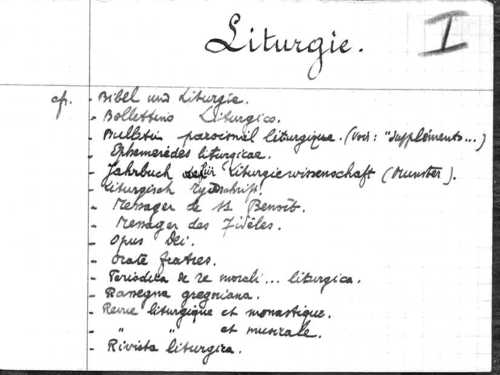 Liturgie. I
cfr. - Bibel und Liturgie.
- Bollettino Liturgico.
- Bulletin paroissial liturgique. (Voir: "Suppléments...)
- Ephemerides liturgicae.
- Jahrbuch für Liturgiewissenschaft (Munster).
- Liturgisch Tijdschrift.
- Messager de St Benoît.
- Messager des Fidèles.
- Opus Dei.
- Orate fratres.
- Periodica de re morali... liturgica.
- Rassegna gregoriana.
- Revue liturgique et monastique.
- " " et musicale.
- Rivista liturgica.